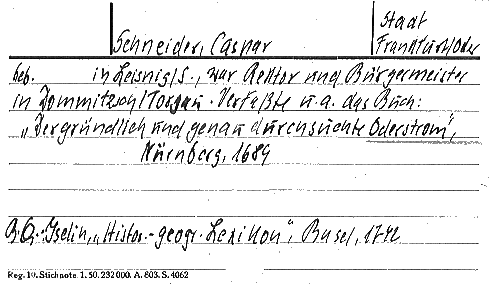 Schneider, Caspar
Stadt
Frankfurt/Oder
geb. in Leisnig/S., war Rektor und Bürgermeister
in Dommitzsch/Torgau. Verfaßte u.a. das Buch:
„Der gründlich und genau durchsuchte Oderstrom",
Nürnberg, 1689
B.Q.: Iselin, „Histor.-geogr. Lexikon", Basel, 1742
Reg. 10. Stichnote. 1. 50. 232 000. A. 803. S. 4062